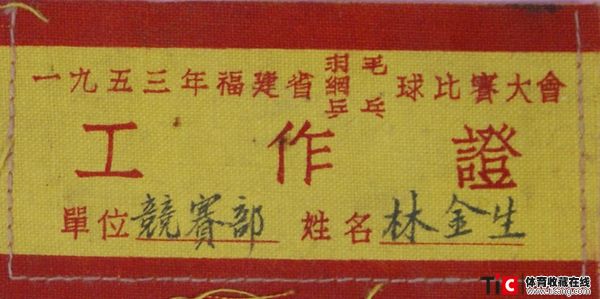 一九五三年福建省羽毛網乒乓球比賽大會
工作證
單位 競賽部 姓名 林金生
TIC 体育收藏在线
www.ticang.com